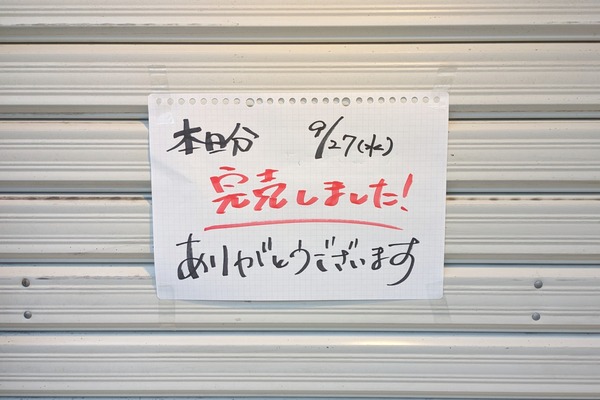 本日分 9/27(水)
完売しました!
ありがとうございます